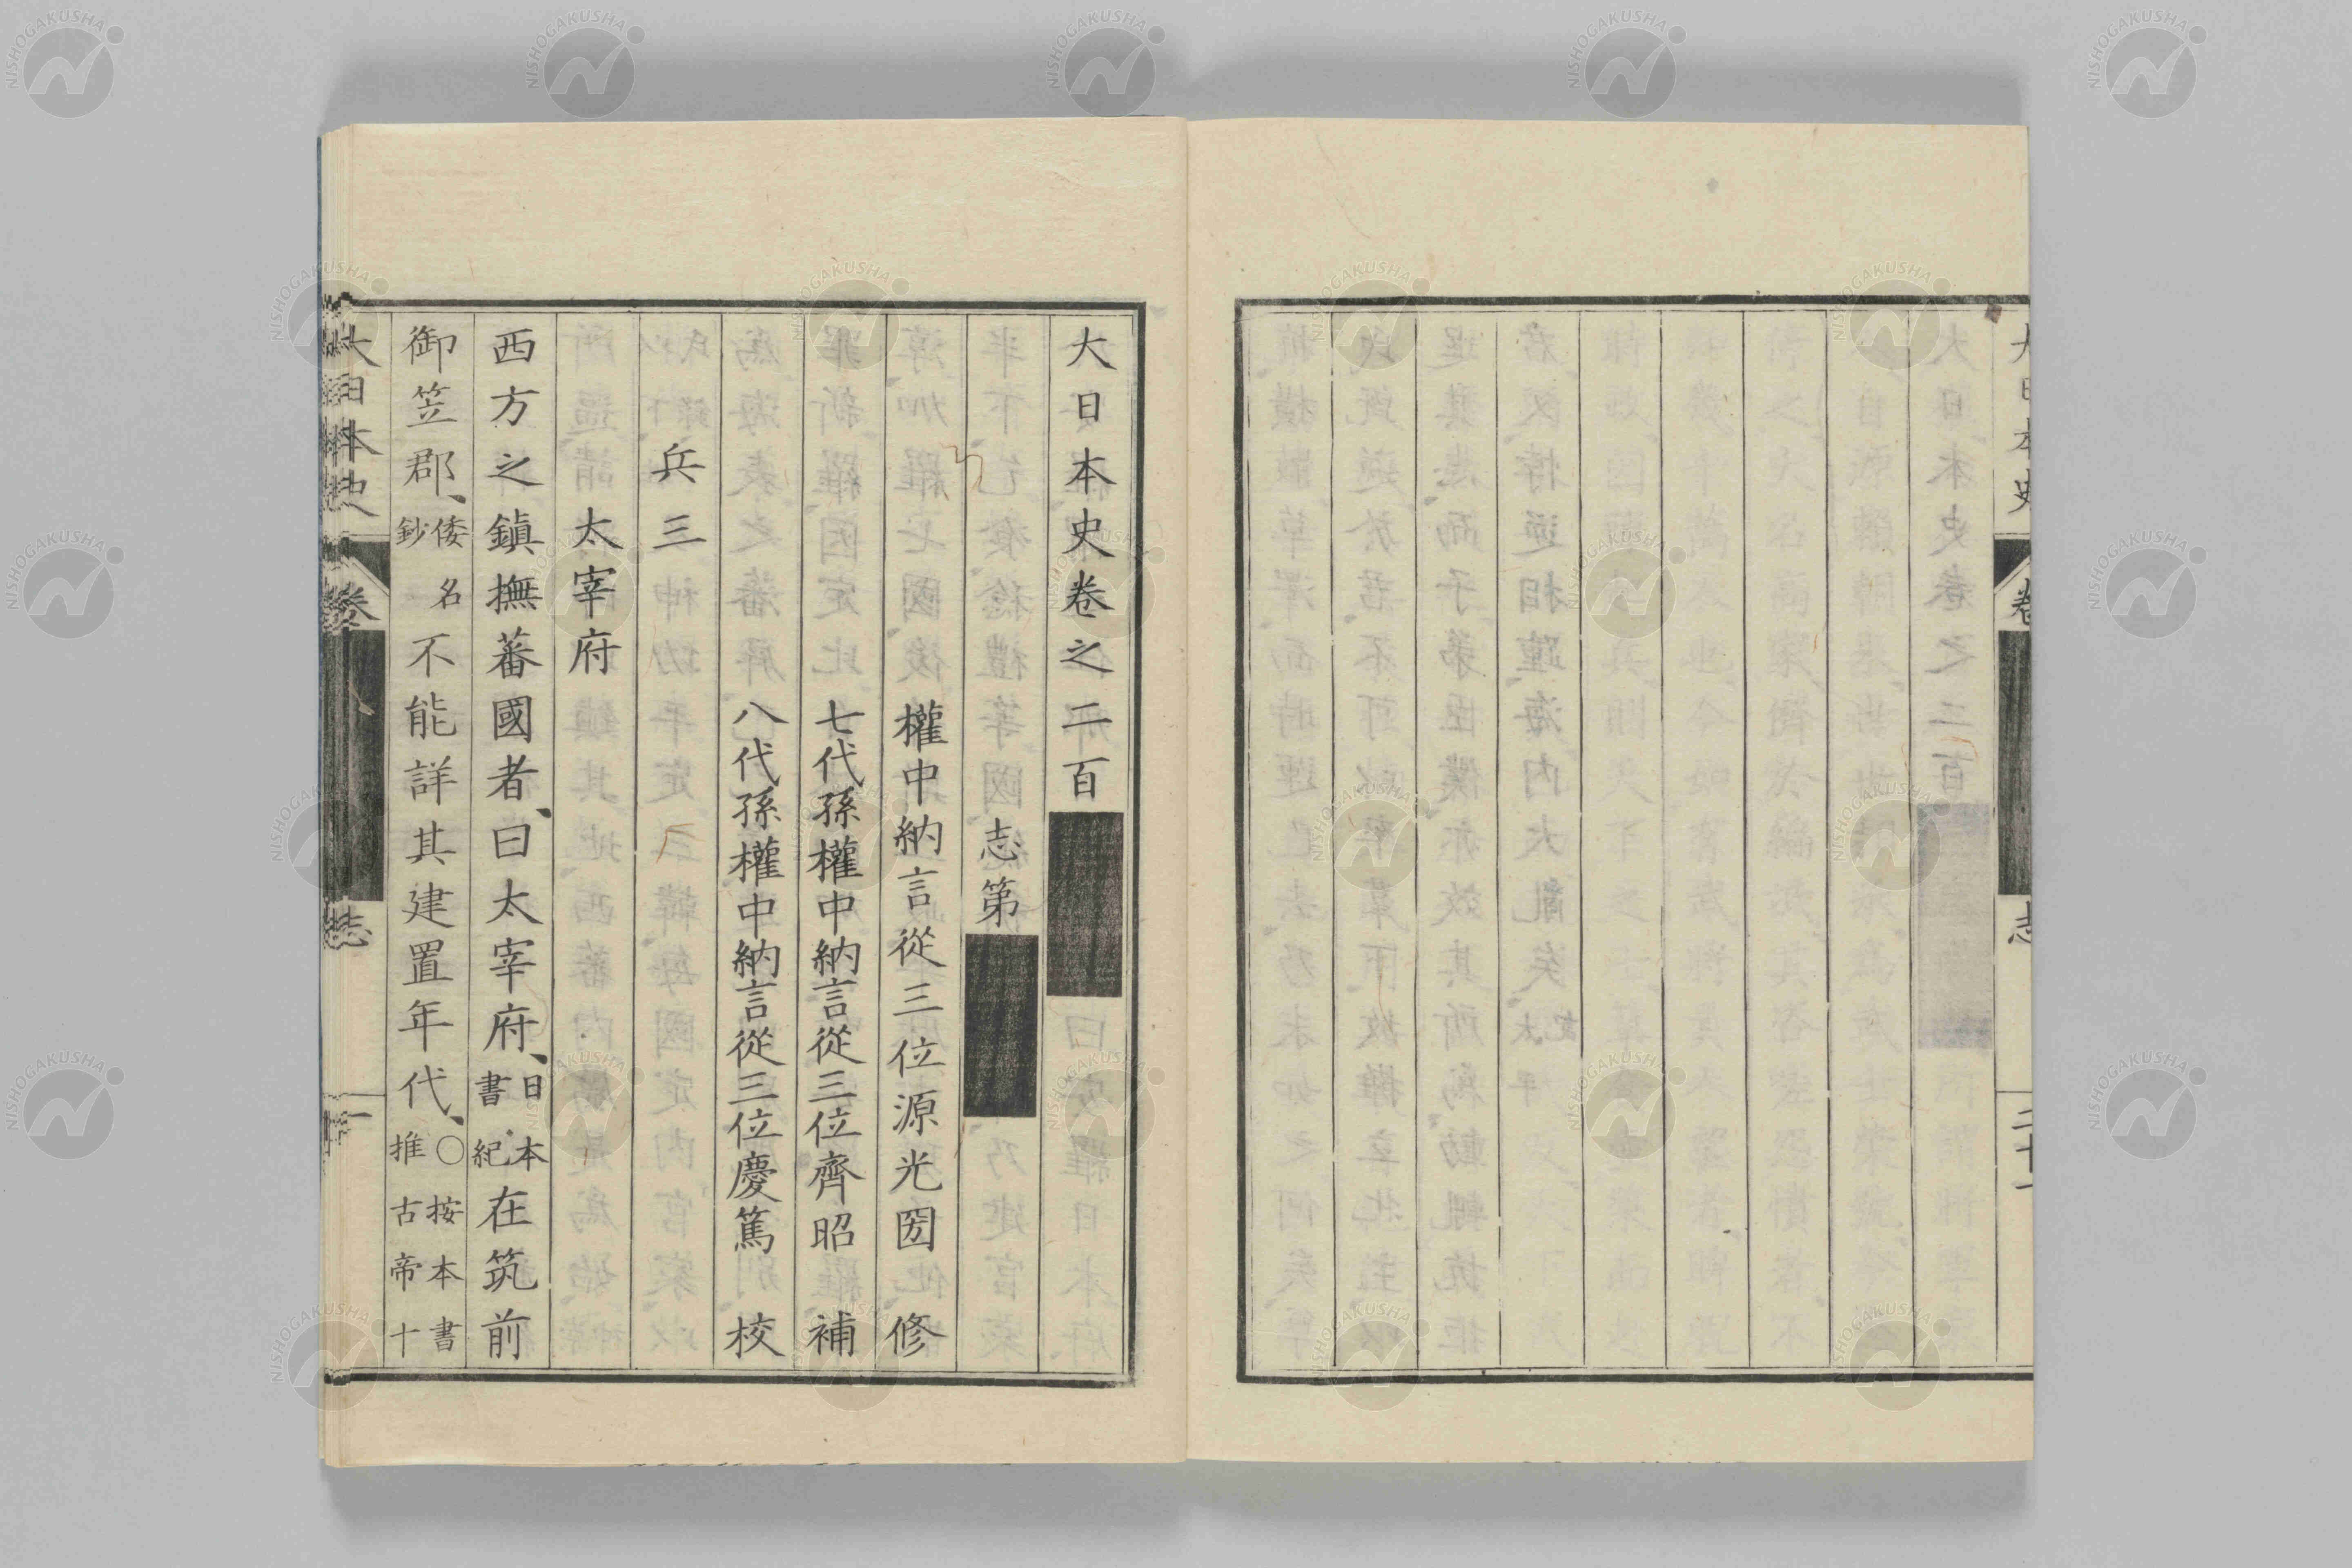 大日本史
卷
志
大日本史卷之二百
志第
權中納言從三位源光圀 修
七代孫權中納言從三位齊昭 補
八代孫權中納言從三位慶篤 校
兵三
太宰府
西方之鎮撫蕃國者、曰太宰府、日本書紀在筑前
御笠郡、倭名鈔不能詳其建置年代、○按本書推古帝十
大日本史
卷
志
NISHOGAKUSHA